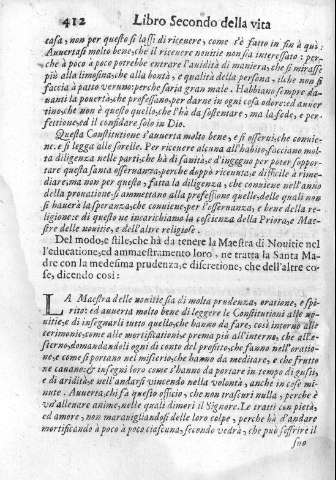 412 Libro Secondo della vita
casa, non per questo si lassi di riceuere, come s'è fatto in sin à quà.
Auuertasi molto bene, che il riceuere nouitie non sia interessato: per-
che à poco à poco potrebbe entrare l'auidità di maniera, che si mirasse
più alla limosina, che alla bontà, e qualità della persona, il che non si
faccia à patto veruno: perche saria gran male. Habbiano sempre da-
uanti la pouertà, che professano, per darne in ogni cosa odore: ed auuer
tino, che non è questo quello, che l'hà da sostentare, ma la fede, e per-
fettione, ed il confidare solo in Dio.
Questa Constitutione s'auuerta molto bene, e si osserui, che conuie-
ne. e si legga alle sorelle. Per riceuere alcuna all'habito, facciane mol-
ta diligenza nelle parti, che hà di sanità, e d'ingegno per poter soppor-
tare questa santa osseruanza, perche doppò riceuuta, è difficile à rime-
diare, ma non per questo, fatta la diligenza, che conuiene nell'anno
della probatione si ammettano alla professione quelle, delle quali non
si hauerà la speranza, che conuiene, per l'osseruanza, e bene della re-
ligione: e di questo ne incarichiamo la coscienza della Priora, e Mae-
stre delle nouitie, e dell'altre religiose.
Del modo, e stile, che hà da tenere la Maestra di Nouitie nel
l'educatione, ed ammaestramento loro, ne tratta la Santa Ma
dre con la medesima prudenza, e discretione, che dell'altre co-
se, dicendo così:
LA Maestra delle nouitie sia di molta prudenza, oratione, e spi-
rito: ed auuerta molto bene di leggere le Constitutioni alle no-
uitie, e di insegnarli tutto quello, che hanno da fare, così intorno alle
cerimonie, come alle mortificationi, e prema più all'interno, che all'e-
sterno, domandandoli ogni dì conto del profitto, che fanno nell'oratio-
ne, e come si portano nel misterio, che hanno da meditare, e che frutto
ne cauano: & insegni loro come s'hanno da portare in tempo di gusti,
e di aridità, e nell'andarsi vincendo nella volontà, anche in cose mi-
nute. Auuerta, chi fà questo officio, che non trascuri nulla, perche è
vn'alleuare anime, nelle quali dimori il Signore. Le tratti con pietà,
ed amore, non marauigliandosi delle loro colpe, perche hà d'andare
mortificando à poco à poco ciascuna, secondo vedrà, che può soffrire il
suo